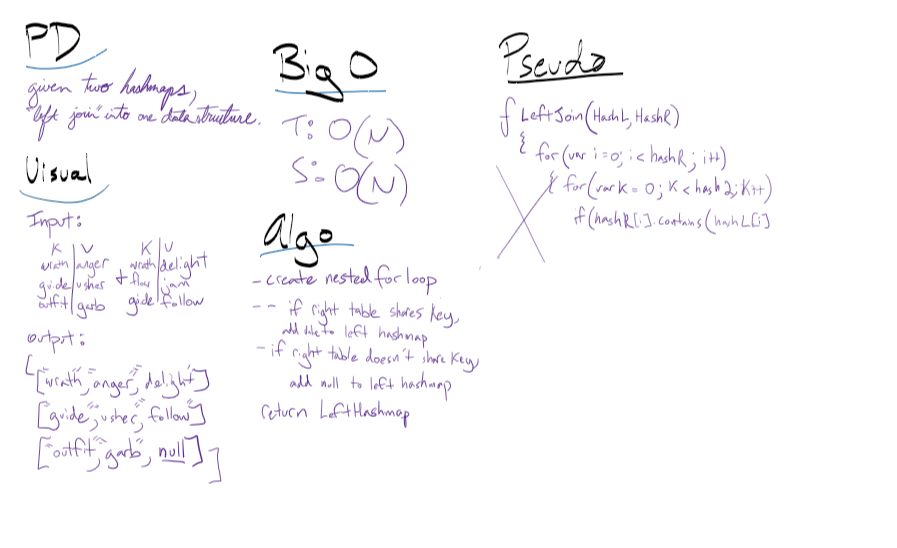 PD
given two hashmaps,
"left join" into one data structure.
Visual
Input:
K | V K | V
wrath | anger + wrath | delight
guide | usher flow | jam
outfit | garb gide | follow
output:
[
["wrath", "anger", "delight"]
["guide", "usher", "follow"]
["outfit", "garb", null]
]
Big O
T: O(N)
S: O(N)
Algo
- create nested for loop
-- if right table shares key,
add to left hashmap
- if right table doesn't share key,
add null to left hashmap
return LeftHashmap
Pseudo
f LeftJoin(HashL, HashR)
{ for(var i=0; i < hashR; i++)
{ for(var k = 0; K < hash2; K++)
if(hashR[i].contains(hashL[i]